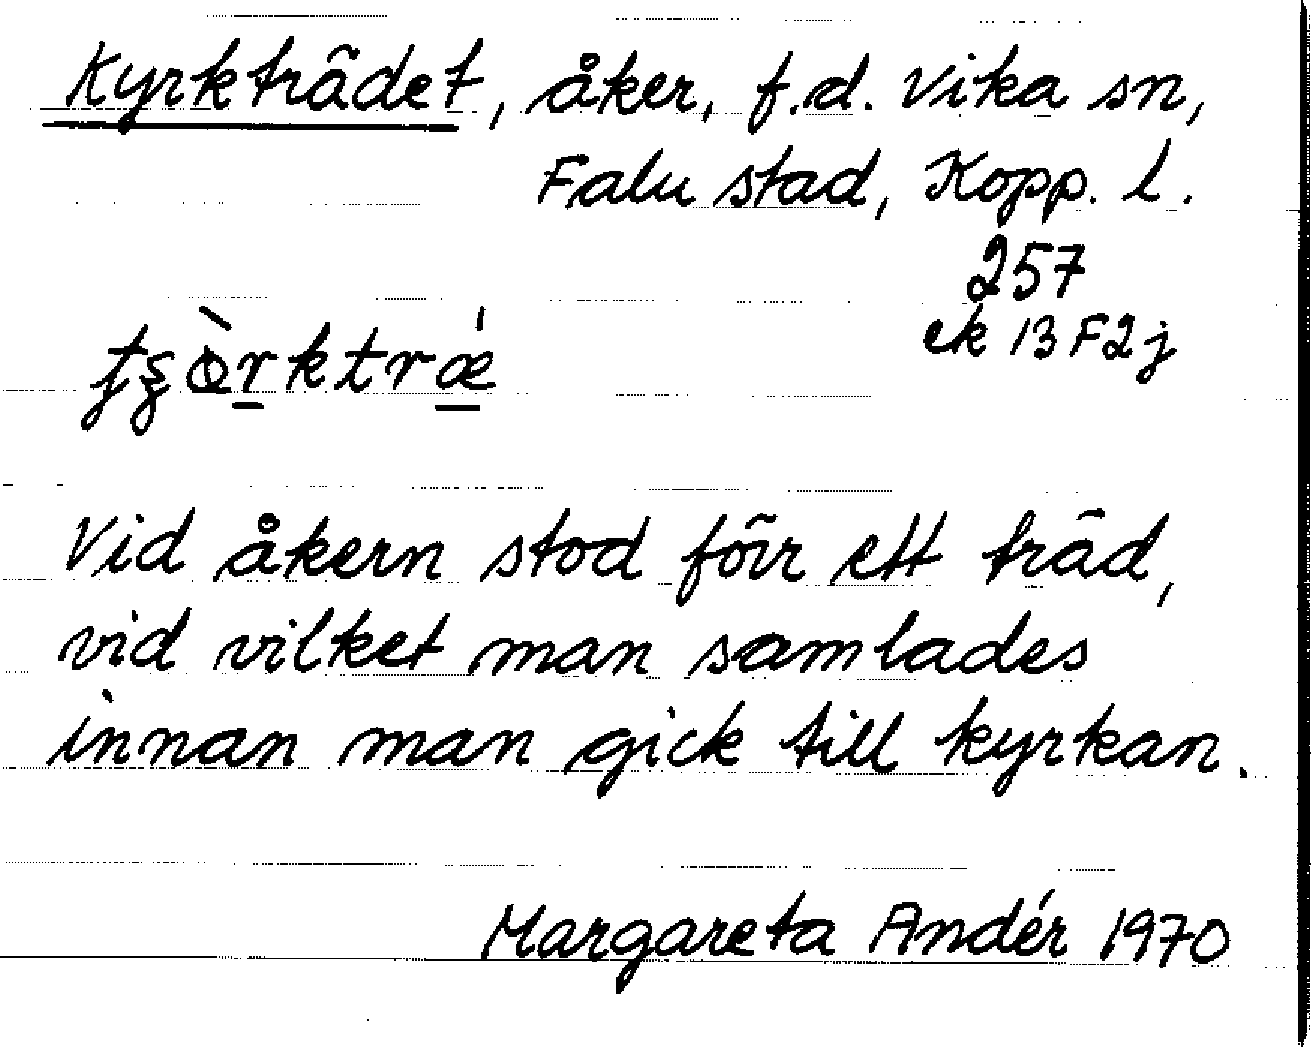 Kyrkträdet, åker, f.d. Vika sn,
Falu stad, Kopp. l.
257
ek 13 F2j
Vid åkern stod förr ett träd,
vid vilket man samlades
innan man gick till kyrkan.
Margareta Andér 1970